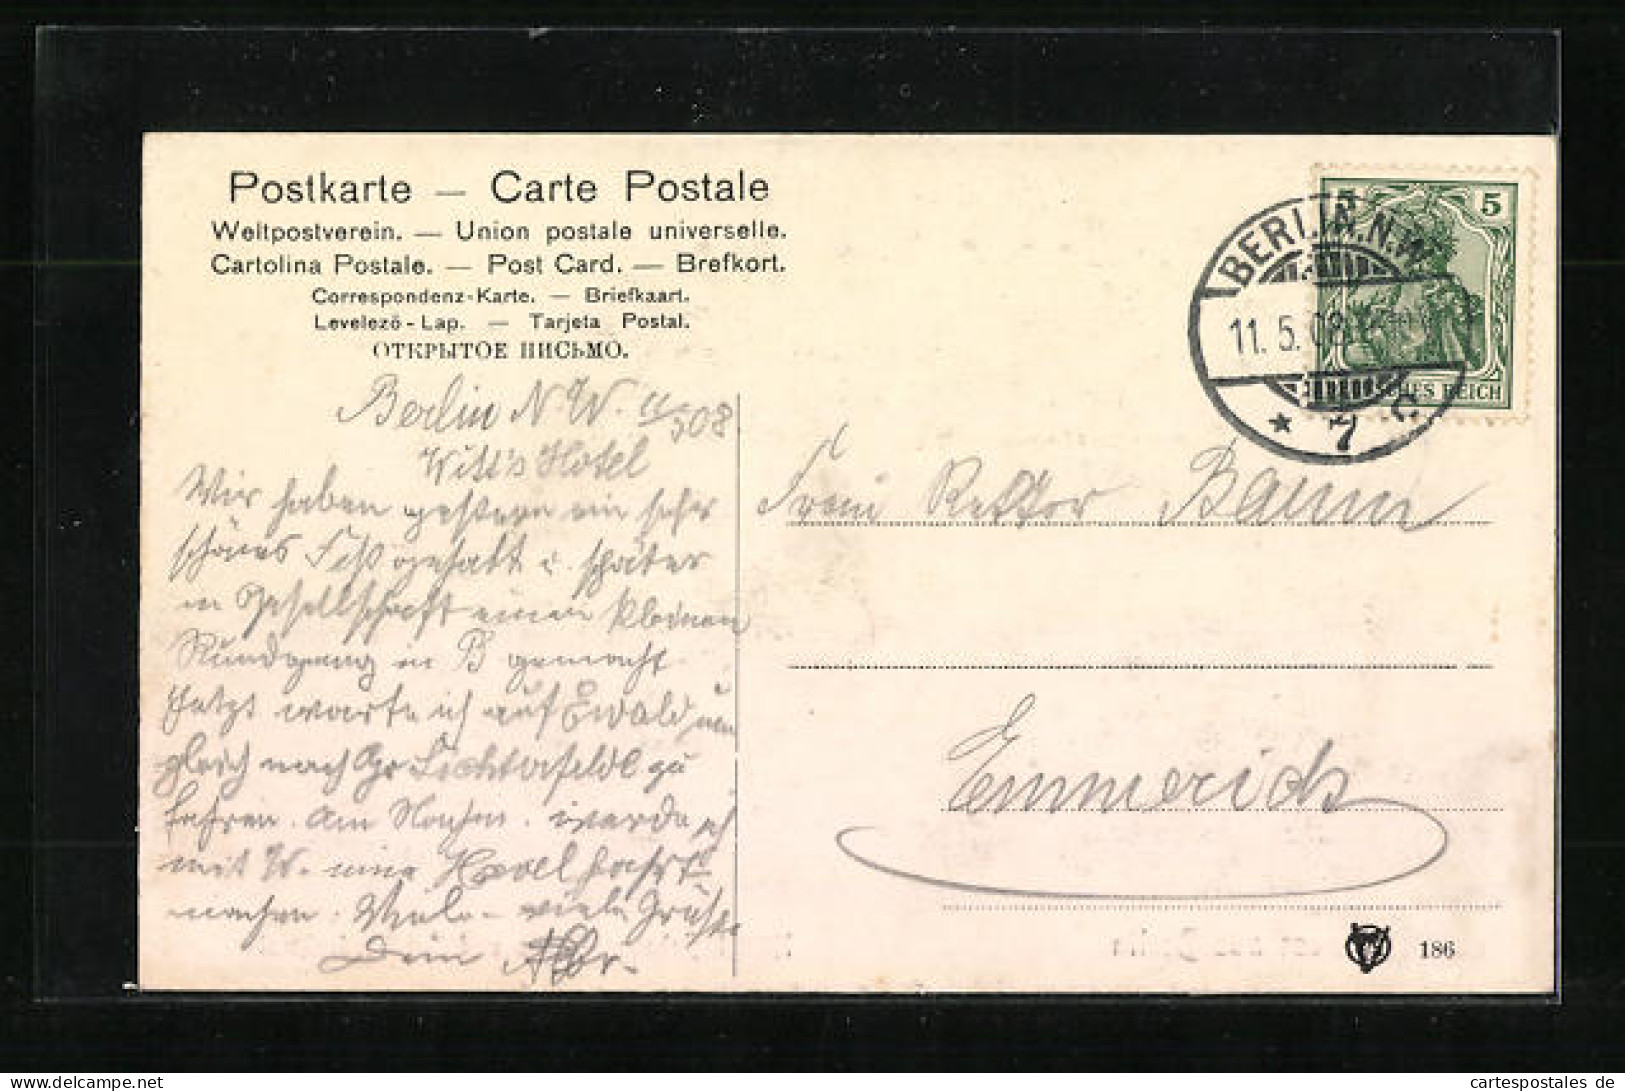 Postkarte — Carte Postale
Weltpostverein. — Union postale universelle.
Cartolina Postale. — Post Card. — Brefkort.
Correspondenz-Karte. — Briefkaart.
Levelező-Lap. — Tarjeta Postal.
ОТКРЫТОЕ ПИСЬМО.
5 5
BERLIN.N.W.
11. 5. 08
* 7 c.
REICH
Berlin N.W. 11/5 08
Witt's Hotel
Wir haben gestern ein sehr
schönes Fest gehabt u. später
in Gesellschaft einen kleinen
Rundgang in B gemacht
Jetzt warte ich auf Ewald um
gleich nach Gr Lichterfelde zu
fahren. Am Nachm. werde ich
mit W. eine Havelfahrt
machen. Viele - viele Grüße
Dein
Frau Rektor Baum
Emmerich
186
cartespostales de